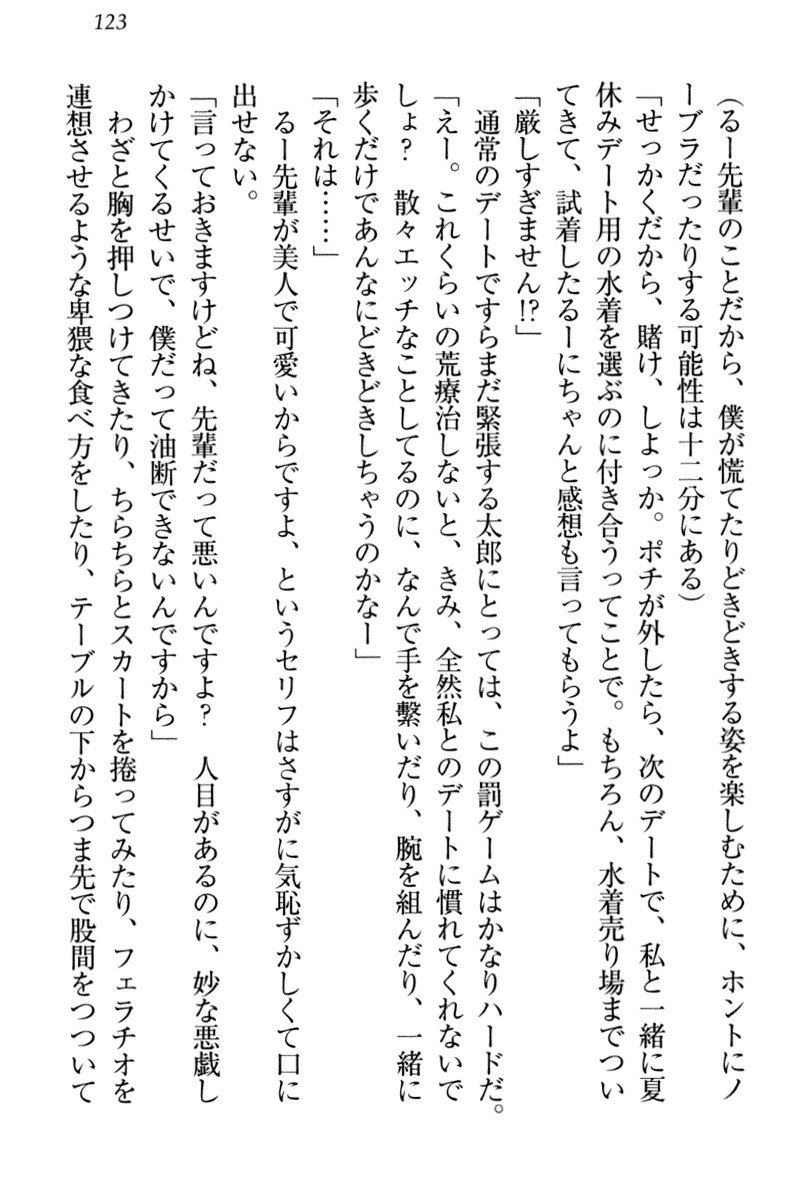 123
（るー先輩のことだから、僕が慌てたりどきどきする姿を楽しむために、ホントにノ
ーブラだったりする可能性は十二分にある）
「せっかくだから、賭け、しよっか。ポチが外したら、次のデートで、私と一緒に夏
休みデート用の水着を選ぶのに付き合うってことで。もちろん、水着売り場までつい
てきて、試着したるーにちゃんと感想も言ってもらうよ」
「厳しすぎません!?」
　通常のデートですらまだ緊張する太郎にとっては、この罰ゲームはかなりハードだ。
「えー。これくらいの荒療治しないと、きみ、全然私とのデートに慣れてくれないで
しょ？　散々エッチなことしてるのに、なんで手を繋いだり、腕を組んだり、一緒に
歩くだけであんなにどきどきしちゃうのかなー」
「それは……」
　るー先輩が美人で可愛いからですよ、というセリフはさすがに気恥ずかしくて口に
出せない。
「言っておきますけどね、先輩だって悪いんですよ？　人目があるのに、妙な悪戯し
かけてくるせいで、僕だって油断できないんですから」
　わざと胸を押しつけてきたり、ちらちらとスカートを捲ってみたり、フェラチオを
連想させるような卑猥な食べ方をしたり、テーブルの下からつま先で股間をつついて